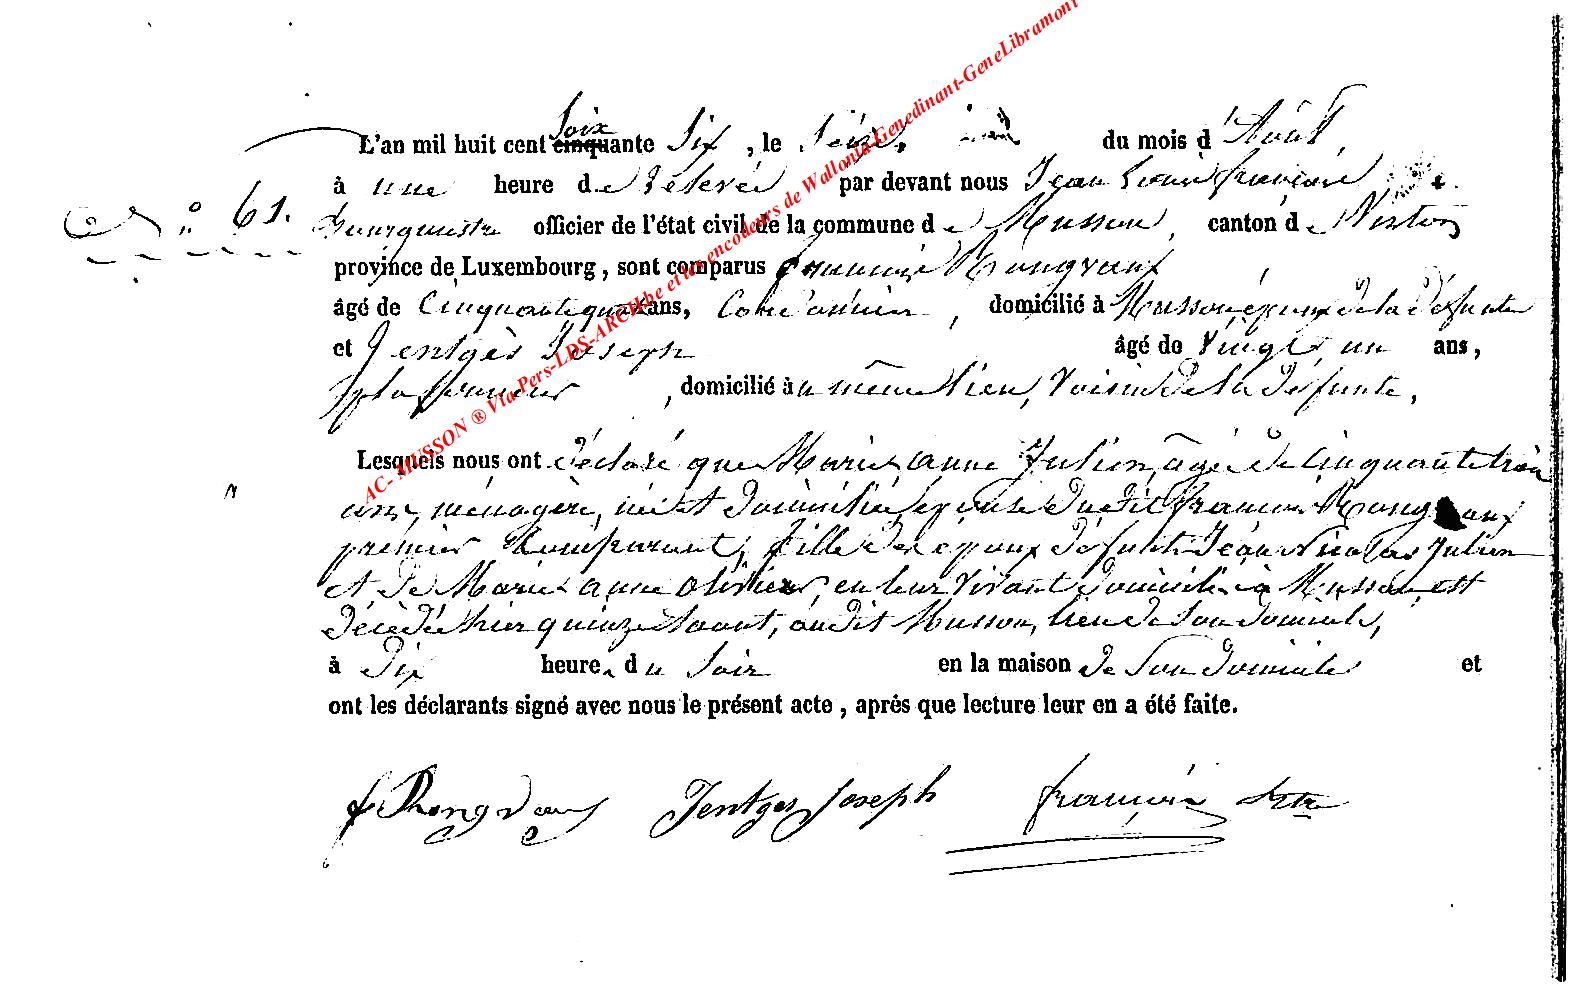 AC- MUSSON ® Via Pers-LDS-ARCHbe et les encodeurs de Wallonia-Genedinant-GeneLibramont
N° 61.
L'an mil huit cent Soixante Six, le Seize du mois d'Août,
à une heure de relevée par devant nous Jean Louis François
Bourgmestre officier de l'état civil de la commune de Musson, canton de Virton
province de Luxembourg, sont comparus François Rongvaux
âgé de Cinquante quatre ans, Cordonnier, domicilié à Musson, époux de la défunte
et Jentgès Joseph âgé de vingt un ans,
plafonneur, domicilié au même lieu, voisin de la défunte,
Lesquels nous ont déclaré que Marie anne Julien, agée de Cinquante trois
ans, ménagère, née et domiciliée, épouse du dit François Rongvaux
premier Comparant, fille des époux défunts Jean Nicolas Julien
et de Marie anne Olivier, en leur vivant domiciliés à Musson, est
décédée hier quinze Aout, au dit Musson, lieu de Son domicile,
à Dix heures du Soir en la maison de Son domicile et
ont les déclarants signé avec nous le présent acte, après que lecture leur en a été faite.
f Rongvaux Jentges Joseph François